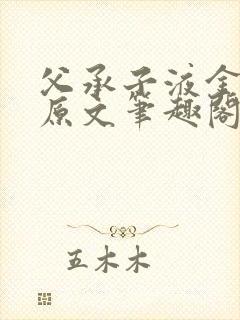 父承子液全
原文笔趣阁
五木木